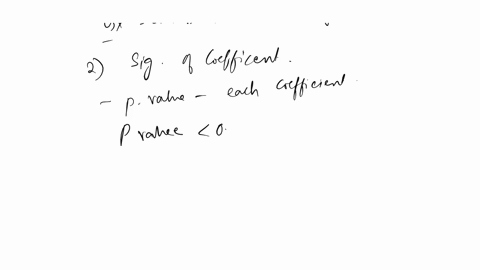 2) Sig. of Coefficent.
- p. value - each coefficient.
P value < 0.